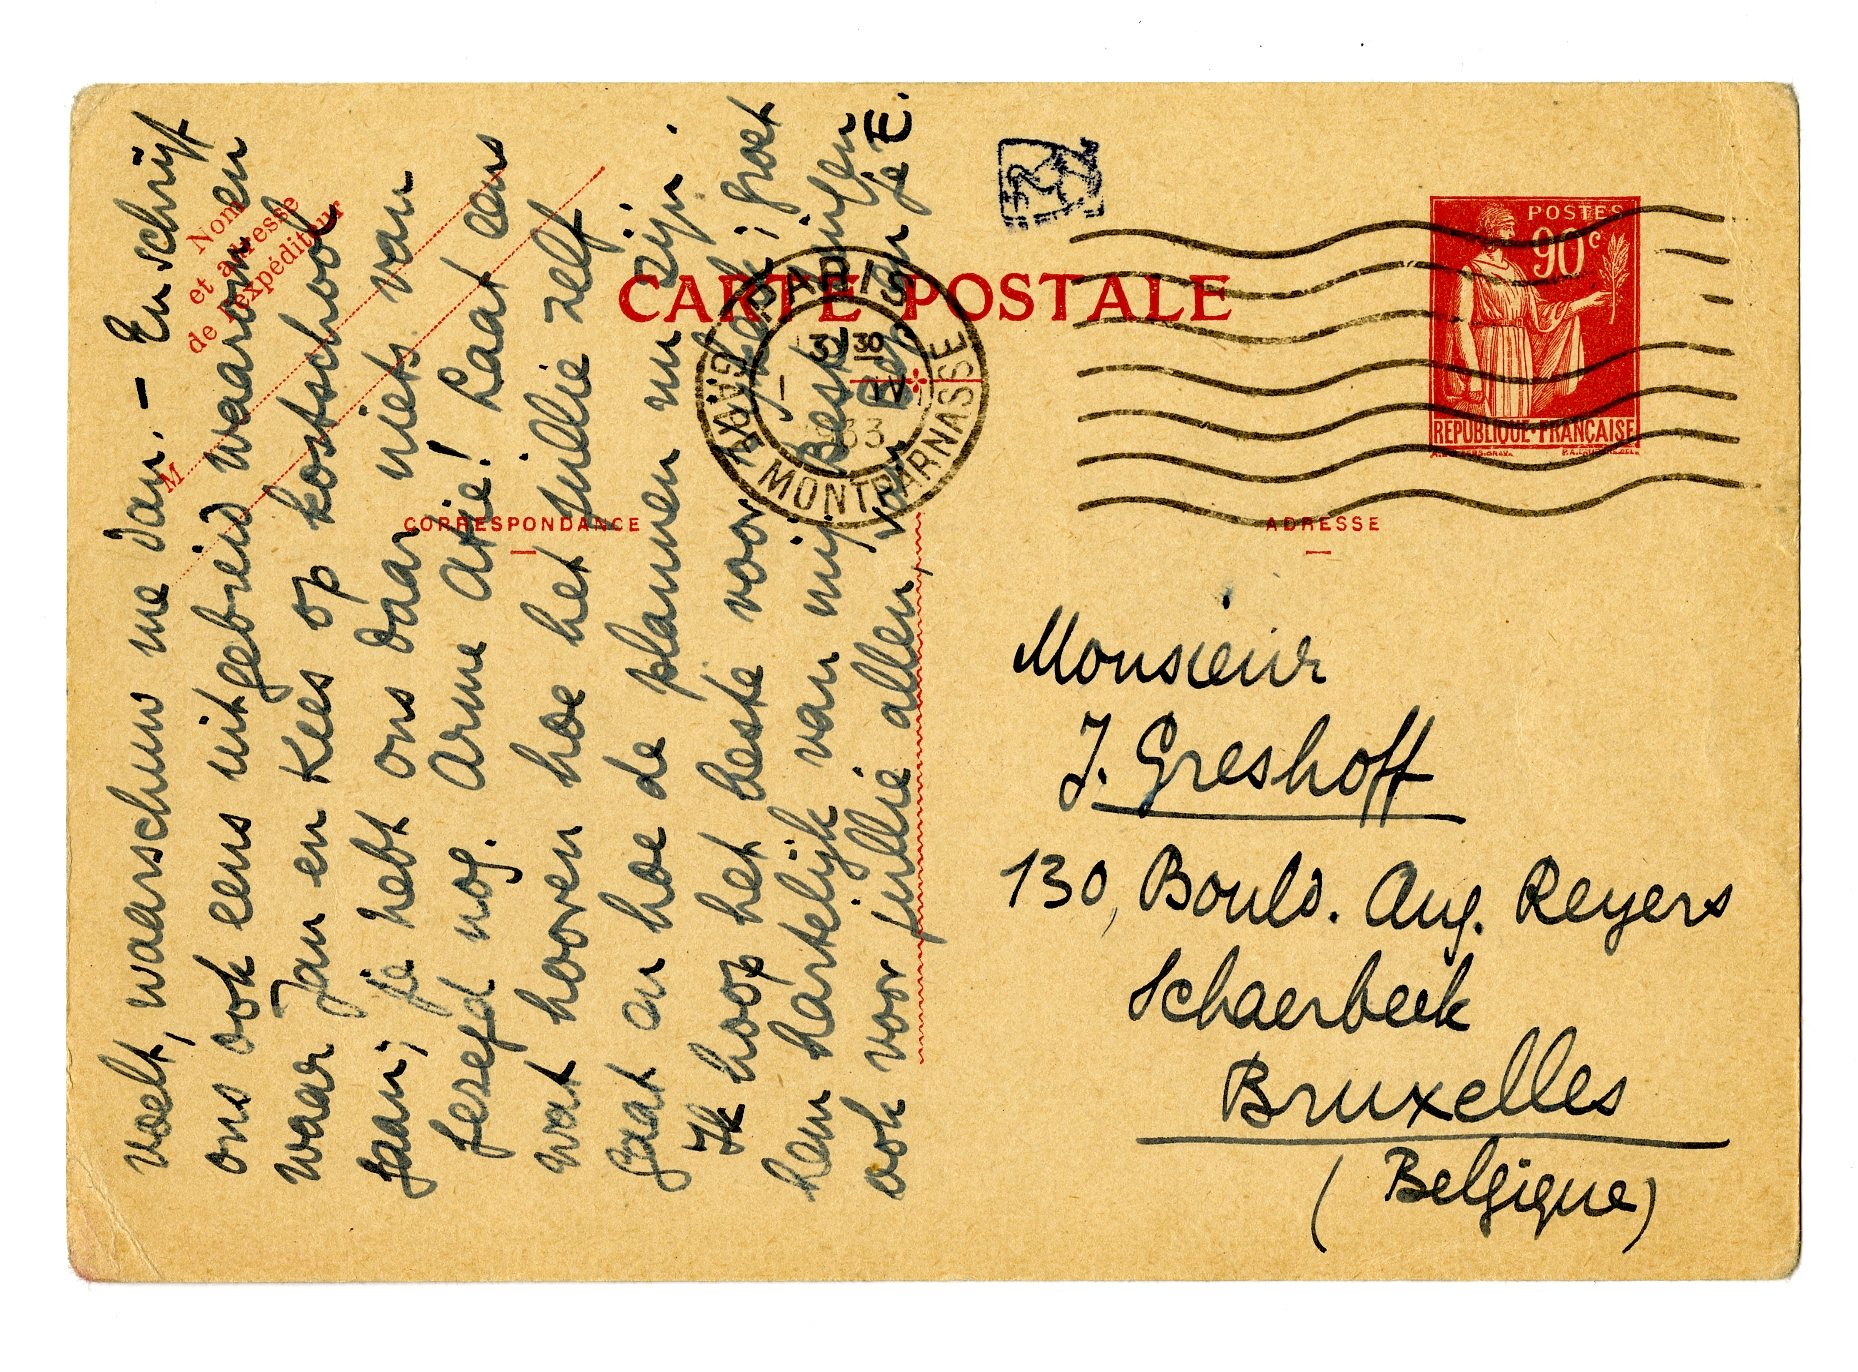 voelt, waarschuw me dan. — En schrijf
ons ook eens uitgebreid waarom en
waar Jan en Kees op kostschool
gaan; je hebt ons daar niets van
gezegd nog. Arme Atie! Laat eens
wat hooren hoe het jullie zelf
gaat en hoe de plannen nu zijn.
Ik hoop het beste voor ; groet
hem hartelijk van mij. Beste
ook voor jullie allen, van je E.
Nom
et adresse
de l'expéditeur
M
CARTE POSTALE
CORRESPONDANCE
ADRESSE
PARIS
GARE
MONTPARNASSE
30
IV
33
POSTES
90c
REPUBLIQUE·FRANÇAISE
Monsieur
J. Greshoff
130, Bould. Aug. Reyers
Schaerbeek
Bruxelles
(Belgique)